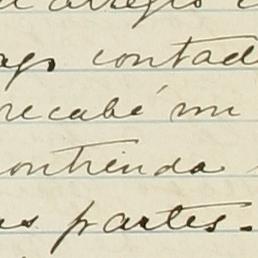 arreglo
contad
recabé mi
contienda
partes.